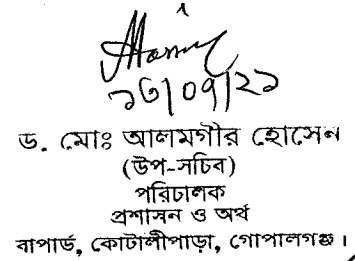 ১৩/০৭/২১
ড. মোঃ আলমগীর হোসেন
(উপ-সচিব)
পরিচালক
প্রশাসন ও অর্থ
বাপার্ড, কোটালীপাড়া, গোপালগঞ্জ।